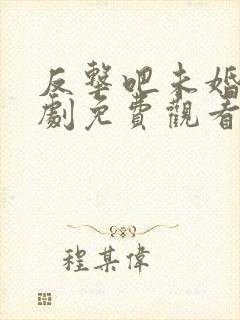 反擊吧未婚
劇免費觀看
程某偉